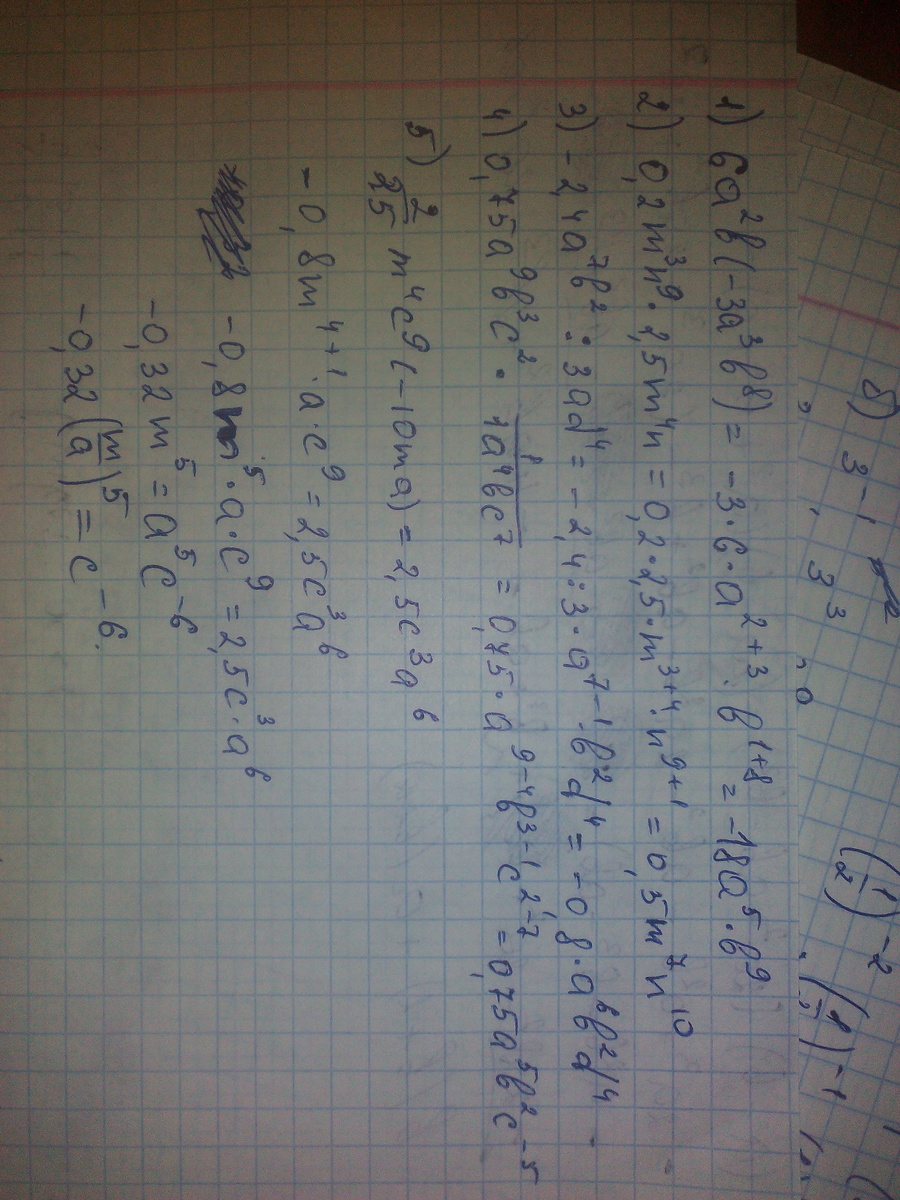 1) 6a²b(-3a³b⁸) = -3·6·a²⁺³·b¹⁺⁸ = -18a⁵·b⁹
2) 0,2m³n⁹·2,5m⁴n = 0,2·2,5·m³⁺⁴·n⁹⁺¹ = 0,5m⁷n¹⁰
3) -2,4a⁷b² : 3ad⁴ = -2,4:3·a⁷⁻¹·b²d⁴ = -0,8·a⁶b²d⁴
4) 0,75a⁹b³c²·1/1a⁴bc⁷ = 0,75·a⁹⁻⁴b³⁻¹c²⁻⁷ = 0,75a⁵b²c⁻⁵
5) 2/25 m⁴c⁹(-10ma) = 2,5c³a⁶
-0,8m⁴⁺¹·a·c⁹ = 2,5c³a⁶
-0,8m⁵·a·c⁹ = 2,5c³·a⁶
-0,32m⁵ = a⁵c⁻⁶
-0,32(m/a)⁵ = c⁻⁶.
δ) 3⁻¹, 3³, 0
(1/2)⁻²